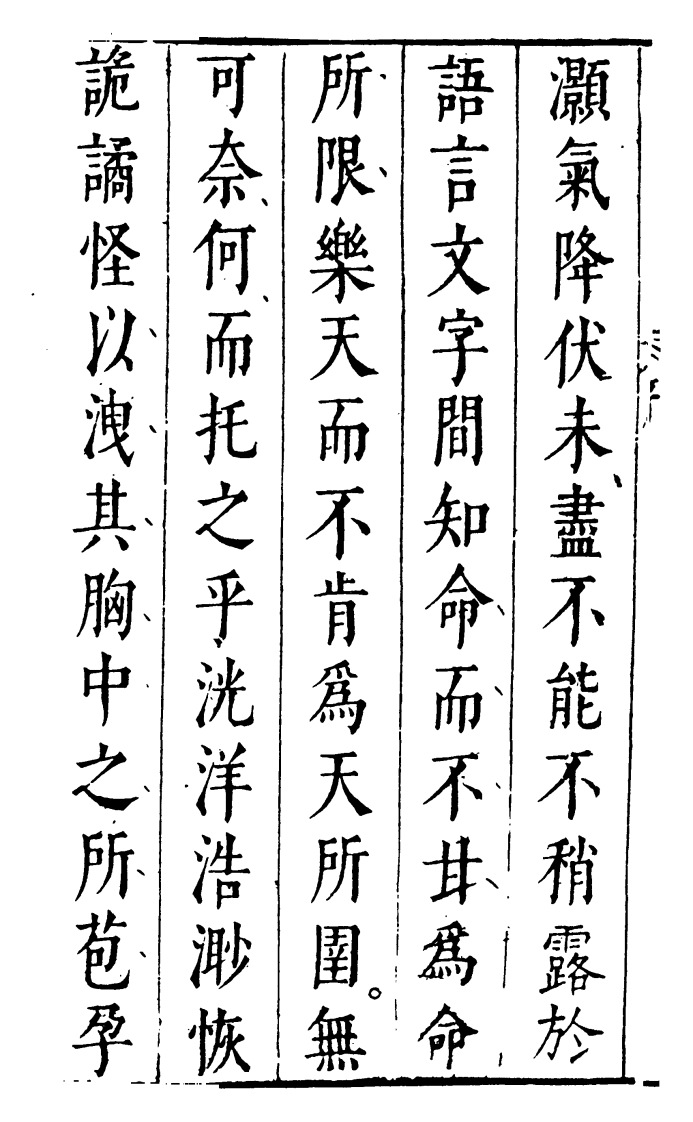 灝氣降伏未盡不能不稍露於
語言文字間知命而不甘爲命
所限樂天而不肯爲天所圉。無
可奈何而托之乎洸洋浩渺恢
詭譎怪以洩其胸中之所苞孕